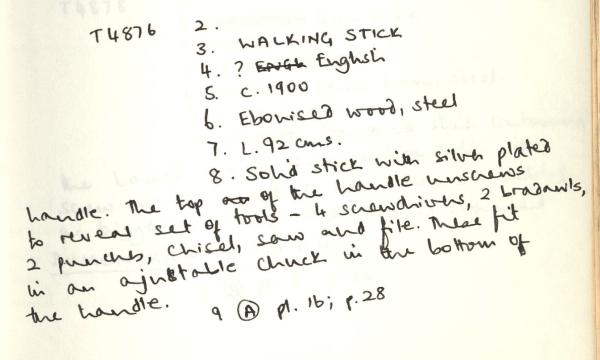 T4876 2.
3. WALKING STICK
4. ? English
5. c. 1900
6. Ebonised wood, steel
7. L. 92 cms.
8. Solid stick with silver plated
handle. The top of the handle unscrews
to reveal set of tools - 4 screwdrivers, 2 bradawls,
2 punches, chisel, saw and file. These fit
in an ajustable chuck in the bottom of
the handle.
9 (A) pl. 16; p. 28